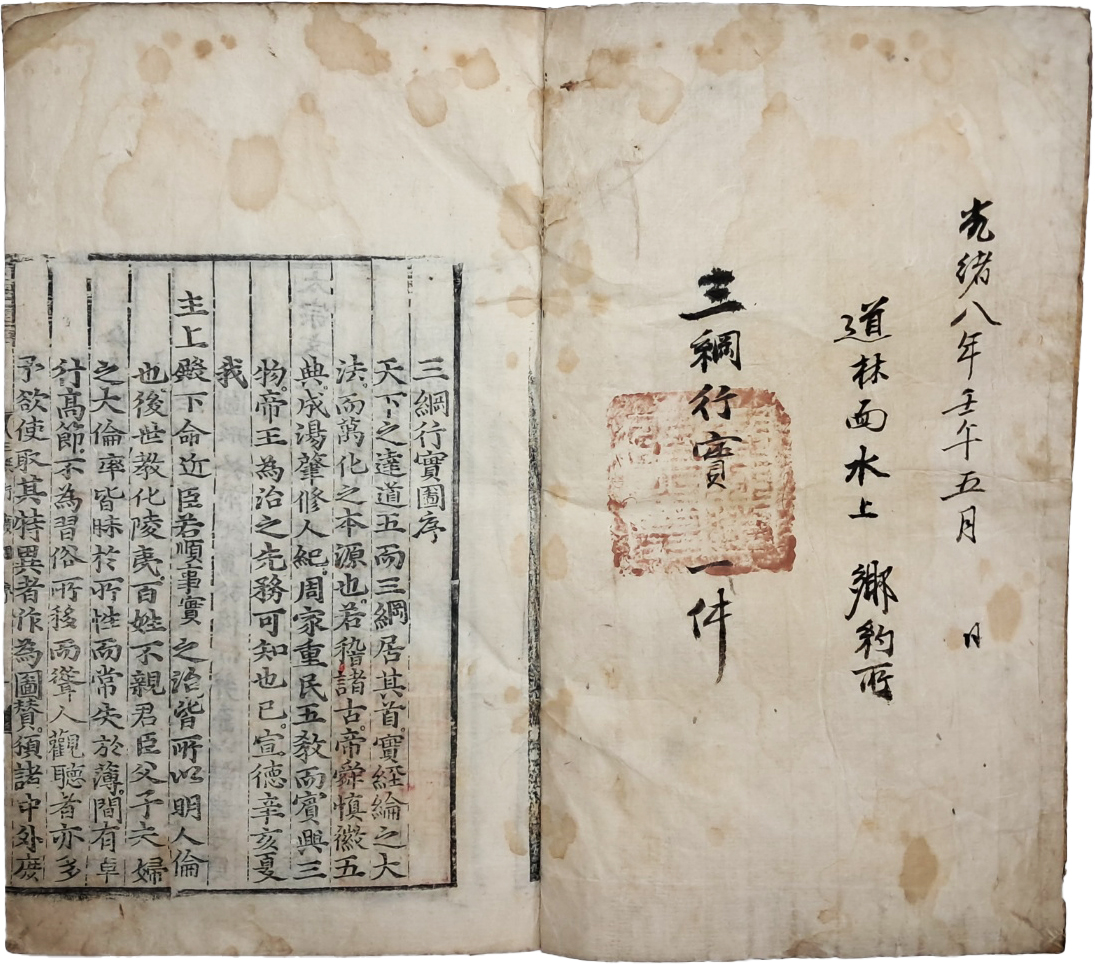 光緒八年壬午五月 日
道林面水上 鄉約所
三綱行實 一件
三綱行實圖序
天下之達道五而三綱居其首實經綸之大
法而萬化之本源也若稽諸古帝舜慎徽五
典成湯肇修人紀周家重民五教而賓興三
物帝王為治之先務可知也已宣德辛亥夏
我
主上殿下命近臣若順事實之治皆所以明人倫
也後世教化陵夷百姓不親君臣父子夫婦
之大倫率皆昧於所性而常失於薄間有卓
行高節不為習俗所移而聳人觀聽者亦多
予欲使取其特異者作為圖贊頒諸中外庶